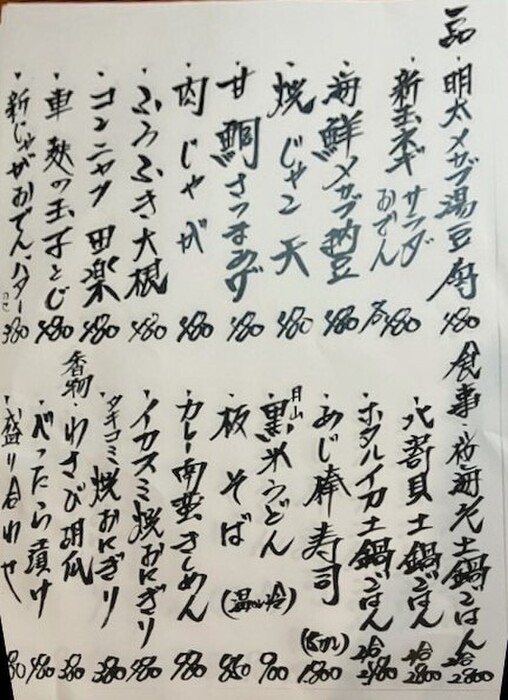 一品
・明太メカブ湯豆腐 480
・新玉ネギ サラダ おでん 各480
・海鮮メカブ納豆 480
・焼じゃこ天 480
・甘鯛さつまあげ 480
・肉じゃが 480
・ふろふき大根 480
・コンニャク田楽 480
・車麩の玉子とじ 480
・新じゃがおでん バターのせ 380
食事
・桜海老土鍋ごはん 2合 2800
・北寄貝土鍋ごはん 2合 2800
・ホタルイカ土鍋ごはん 2合 2480
・あじ棒寿司 (5カン) 1800
・月山 黒米うどん 900
・板そば (温or冷) 850
・カレー南蛮きしめん 980
・イカスミ焼おにぎり 480
・タキコミ焼おにぎり 380
香物
・わさび胡瓜 380
・べったら漬け 480
・盛り合わせ